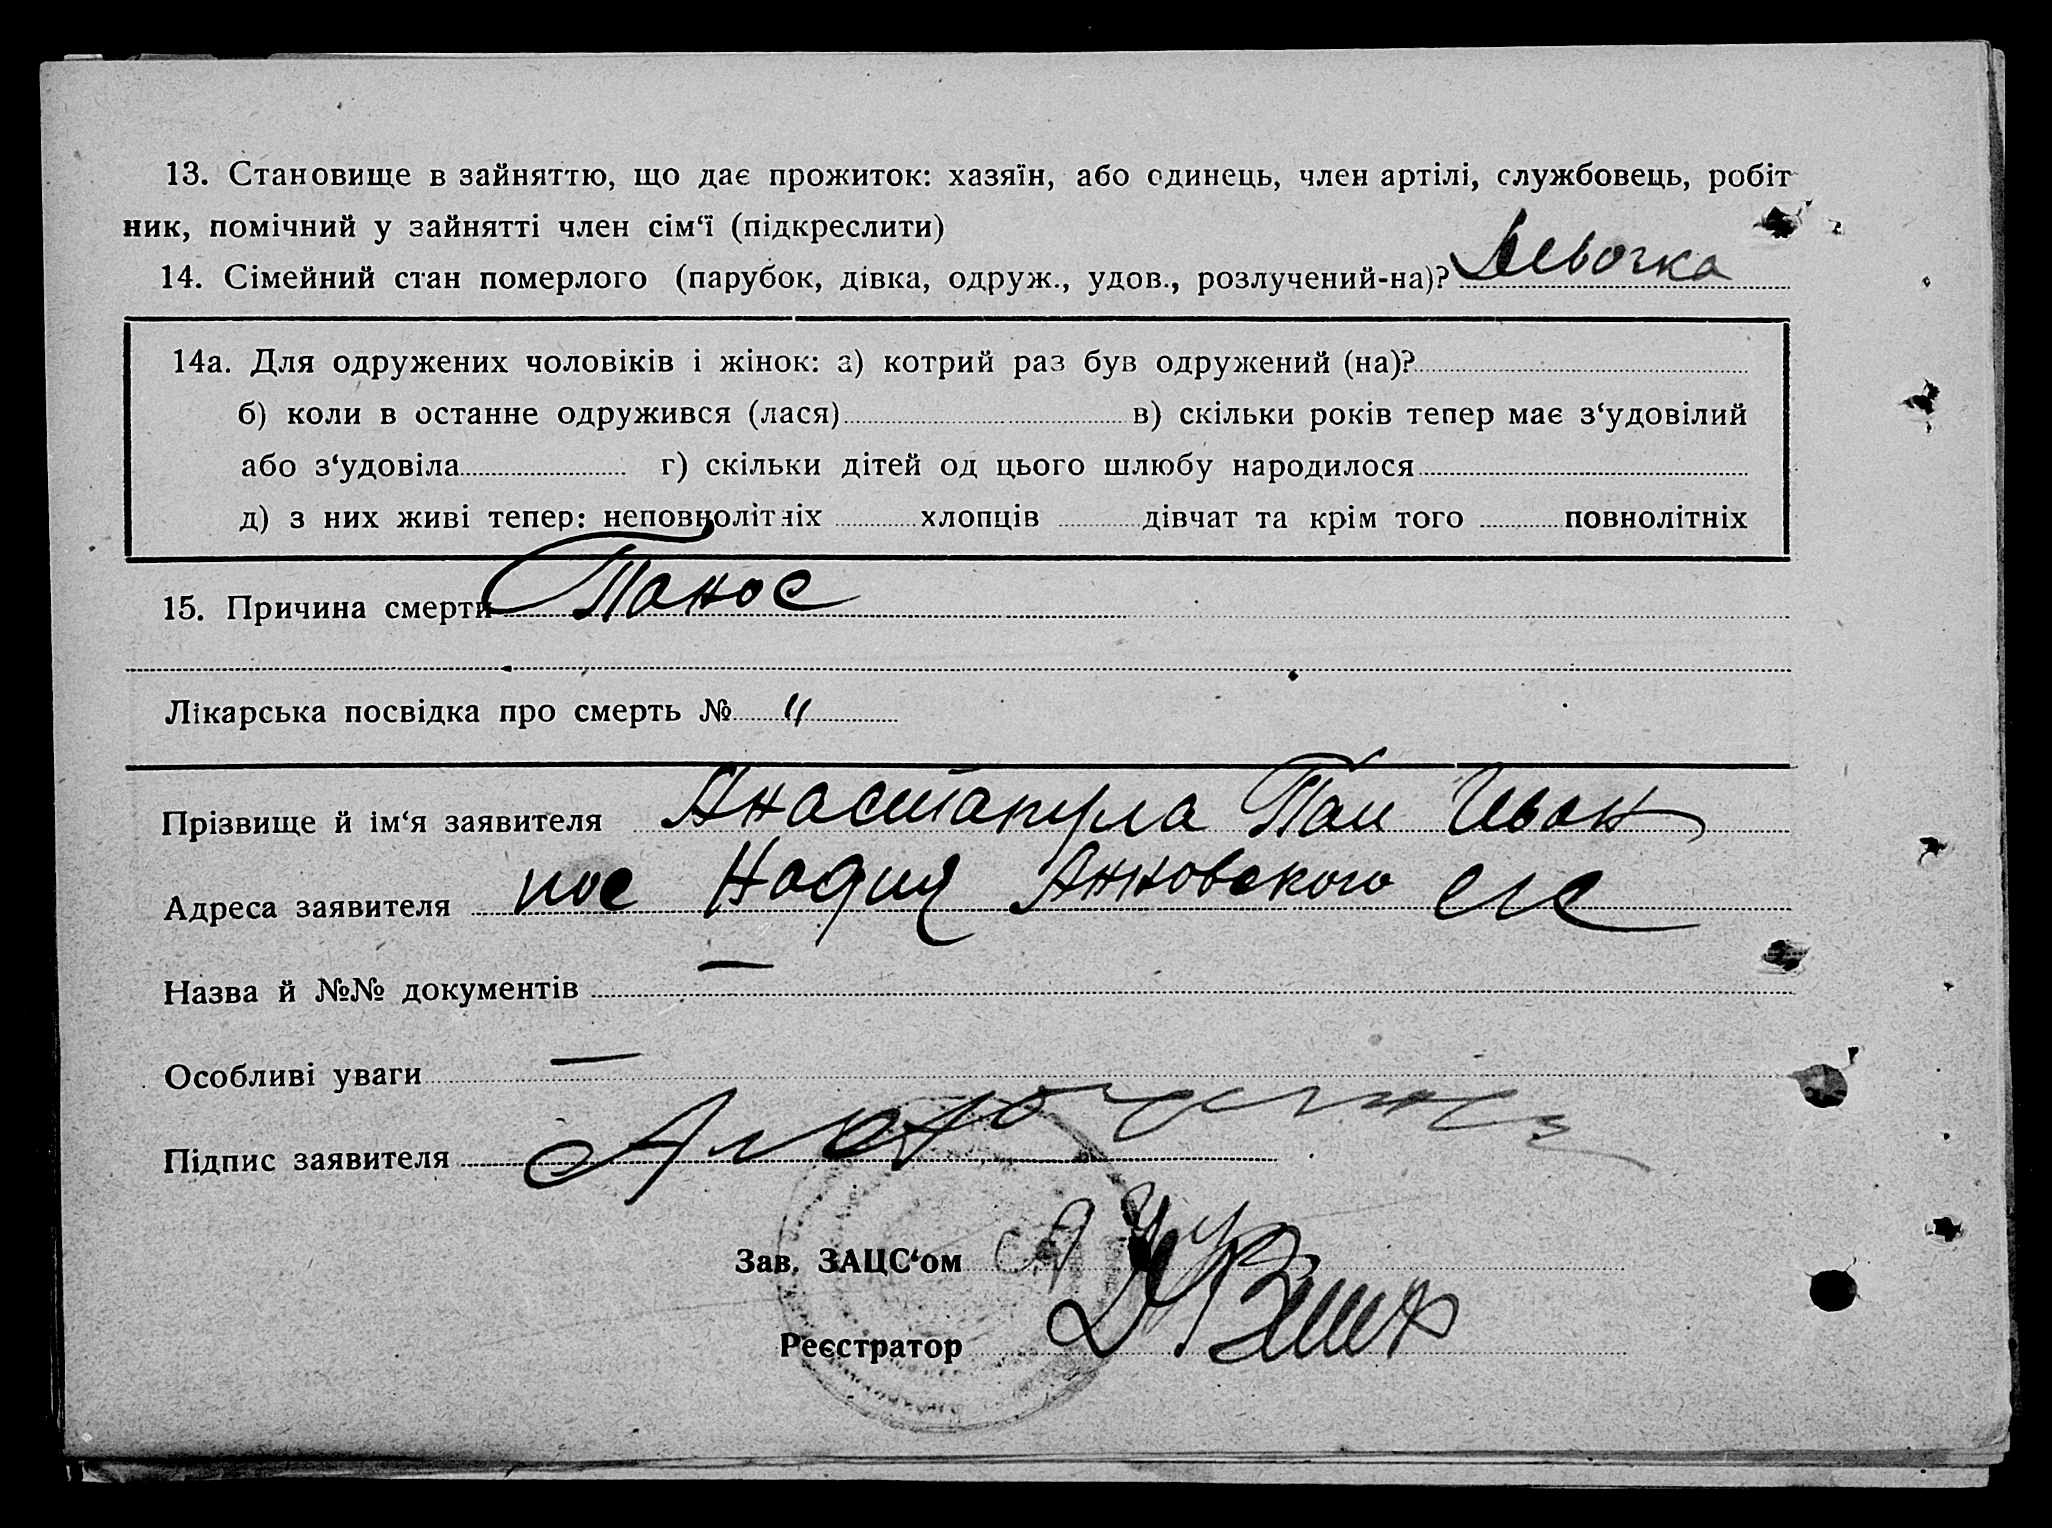 13. Становище в зайняттю, що дає прожиток: хазяїн, або одинець, член артілі, службовець, робіт
ник, помічний у зайнятті член сім‘ї (підкреслити)
14. Сімейний стан померлого (парубок, дівка, одруж., удов., розлучений-на)? Девочка
14а. Для одружених чоловіків і жінок: а) котрий раз був одружений (на)?
б) коли в останнє одружився (лася) в) скільки років тепер має з‘удовілий
або з‘удовіла г) скільки дітей од цього шлюбу народилося
д) з них живі тепер: неповнолітніх хлопців дівчат та крім того повнолітніх
15. Причина смерти Понос
Лікарська посвідка про смерть №
Прізвище й ім‘я заявителя Анастапула Пан Иван
Адреса заявителя пос Надия Анновского с/с
Назва й №№ документів —
Особливі уваги —
Підпис заявителя
Зав. ЗАЦС‘ом
Реєстратор